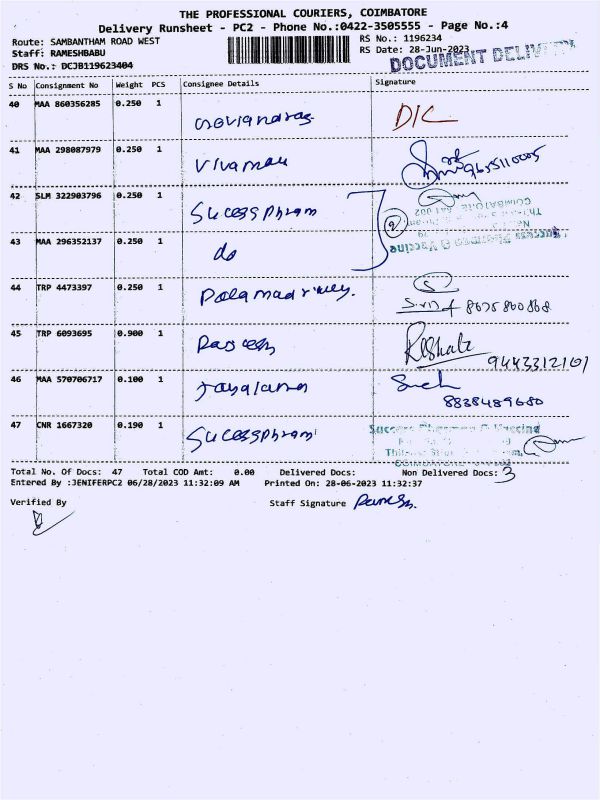 THE PROFESSIONAL COURIERS, COIMBATORE
Delivery Runsheet - PC2 - Phone No.:0422-3505555 - Page No.:4
Route: SAMBANTHAM ROAD WEST RS No.: 1196234
Staff: RAMESHBABU RS Date: 28-Jun-2023
DOCUMENT DELIVERY
DRS No.: DCJB119623404
S No Consignment No Weight PCS Consignee Details Signature
40 MAA 860356285 0.250 1 D/C
41 MAA 298087979 0.250 1 9655110005
42 SLM 322903796 0.250 1 Sucess phram 2
COIMBATORE
Success Pharma & Vaccine
43 MAA 296352137 0.250 1 do
44 TRP 4473397 0.250 1 8675860868
45 TRP 6093695 0.900 1 9443312101
46 MAA 570706717 0.100 1 8838489680
47 CNR 1667320 0.190 1 Sucess phram
Success Pharma & Vaccine
Total No. Of Docs: 47 Total COD Amt: 0.00 Delivered Docs: Non Delivered Docs: 3
Entered By :JENIFERPC2 06/28/2023 11:32:09 AM Printed On: 28-06-2023 11:32:37
Verified By Staff Signature Ramesh